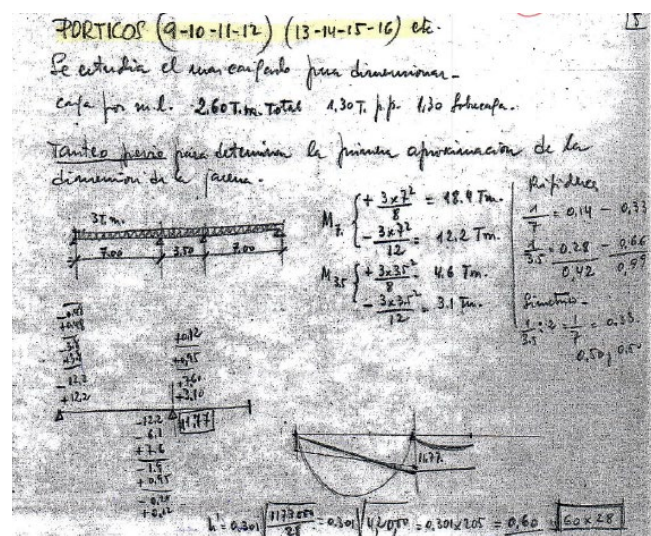 PORTICOS (9-10-11-12) (13-14-15-16) etc.
5
Se estudia el mas cargado para dimensionar.
carga por m.l. 2,60 T.m. Total 1,30 T. p.p. 1,30 Sobrecarga.
Tanteo previo para determinar la primera aproximacion de la
dimension de la jacena.
3T m.
7.00 3.50 7.00
M7 { + 3x7²/8 = 18.4 Tm.
- 3x7²/12 = 12.2 Tm.
M3.5 { + 3x3.5²/8 = 4.6 Tm.
- 3x3.5²/12 = 3.1 Tm.
Rigideces
1/7 = 0,14 - 0,33
1/3.5 = 0.28 - 0,66
0,42 0,99
Simetria -
1/3.5 : 2 = 1/7 = 0.33
0,50, 0.50
-12,2
+12.2
+0,12
+0,95
+3,60
+3,10
11.77
-12.2
-6.1
+7.6
-1.9
+0,95
+0,12
11.77
h = 0,301 √1177000/28 = 0.301 √42050 = 0,301x205 = 0,60 60x28